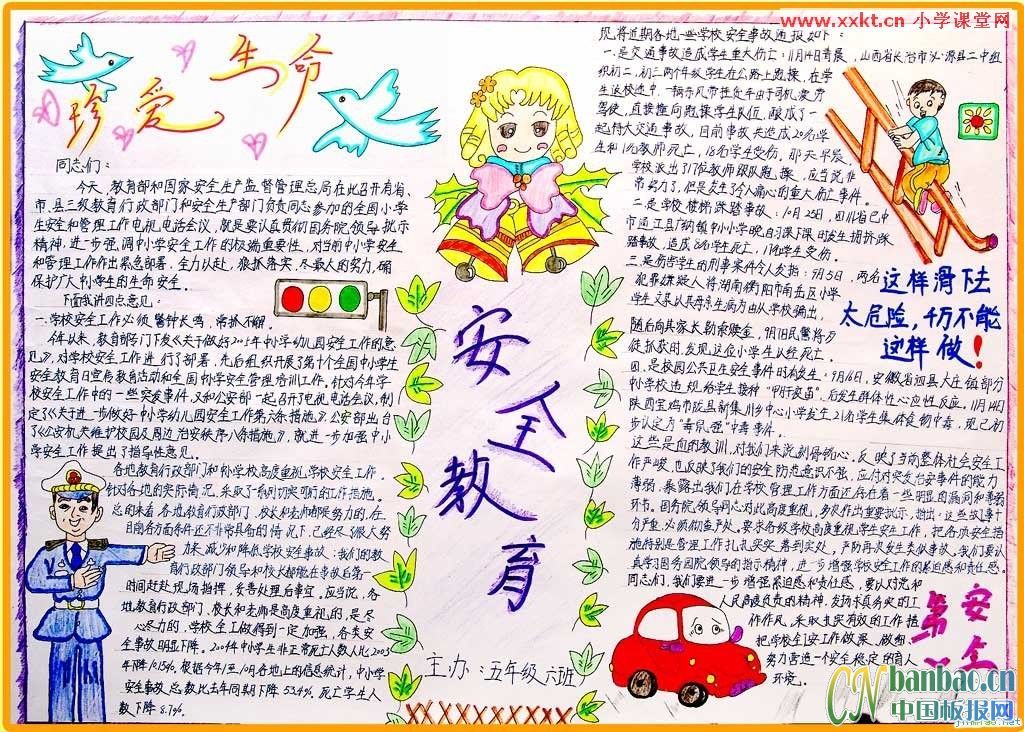 www.xxkt.cn 小学课堂网
珍爱生命
同志们：
今天，教育部和国家安全生产监督管理总局在此召开有省、
市、县三级教育行政部门和安全生产部门负责同志参加的全国小学
生安全和管理工作电视电话会议，就是要认真贯彻国务院领导批示
精神，进一步强调中小学安全工作的极端重要性，对当前中小学安全
和管理工作作出紧急部署，全力以赴，狠抓落实，尽最大的努力，确
保护广大中小学生的生命安全。
下面我讲四点意见：
一、学校安全工作必须警钟长鸣，常抓不懈。
今年以来，教育部专门下发《关于做好2005年中小学幼儿园安全工作的意
见》，对学校安全工作进行了部署，先后组织开展了第十个全国中小学生
安全教育日宣传教育活动和全国中小学安全管理培训工作，针对今年学
校安全工作中的一些突发事件，又和公安部一起召开了电视电话会议，制
定了《关于进一步做好中小学幼儿园安全工作第六条措施》，公安部出台
了《公安机关维护校园及周边治安秩序八条措施》，就进一步加强中小
学安全工作提出了指导性意见。
各地教育行政部门和中小学校高度重视学校安全工作，
针对各地的实际情况，采取了一系列切实可行的工作措施。
总的来看，各地教育行政部门、校长和老师都很努力的，在
目前各方面条件还不非常具备的情况下，已经尽了很大努
力来减少和降低学校安全事故；我们的教
育行政部门领导和校长都能在事故后第一
时间赶赴现场指挥，妥善处理后事宜，应当说，各
地教育行政部门、校长和老师是高度重视的，是尽
心尽力的，学校安全工做得到一定加强，各类安
全事故明显下降。2004年中小学生非正常死亡人数比2003
年下降 根据今年1至10月各地上的信息统计，中小学
安全事故总数比去年同期下降53.4%，死亡学生人
数下降8.7%。
安全教育
主办：五年级六班
现将近期各地一些学校安全事故通报如下：
一是交通事故造成学生重大伤亡：11月14日清晨，山西省长治市沁源县二中组
织初二、初三两个年级学生在公路上跑操，在学
生返校途中，一辆东风带挂货车由于司机疲劳
驾驶，直接撞向跑操学生队伍，酿成了一
起特大交通事故，目前事故共造成20名学
生和1名教师死亡，18名学生受伤。那天早晨，
学校派出了17位教师跟队跑操，应当说非
常努力了，但是发生了令人痛心的重大伤亡事件。
二是学校楼梯踩踏事故：10月25日，四川省巴中
市通江县广纳镇中小小学晚自习下课时发生拥挤踩
踏事故，造成8名学生死亡，17名学生受伤。
三是伤害学生的刑事案件令人发指：9月5日，两名
犯罪嫌疑人将湖南衡阳市南岳区小学
学生文具以其母亲生病为由从学校骗出，
随后向其家长勒索赎金，9月10日警将歹
徒抓获时，发现这位小学生以经死亡。
四、是校园公共卫生安全事件时有发生：9月16日，安徽省泗县大庄镇部分
中小学校违规给学生接种“甲肝疫苗”，后发生群体性心应性反应。11月14日
陕西宝鸡市陇县新集川乡中心小学发生21名学生集体食物中毒，现已初
步认定为“毒鼠强”中毒事件。
这些是血的教训，对我们来说刻骨铭心，反映了当前整体社会安全工
作严峻，也反映了我们的安全防范意识不强，应付对突发治安事件的能力
薄弱，暴露出我们在学校管理工作方面还存在着一些明显的漏洞和薄弱
环节。国务院领导同志对此高度重视，多次作出重要批示，指出：这些故事十
分严重，必须彻查严处。要求各级学校高度重视学生安全工作，把各项安全措
施特别是管理工作扎扎实实落到实处，严防再次发生类似事故，我们要认
真学习国务院领导的指示精神，进一步增强学校安全工作的紧迫感和责任感。
同志们，我们要进一步增强紧迫感和责任感，要以对党和
人民高度负责的精神，发扬求真务实的工
作作风，采取真实有效的工作措
把学校安工安工作做深、做细，
努力营造一个安全稳定的育人
环境。
这样滑下去
太危险，千万不能
这样做！
安全第
CN banbao.cn
中国板报网